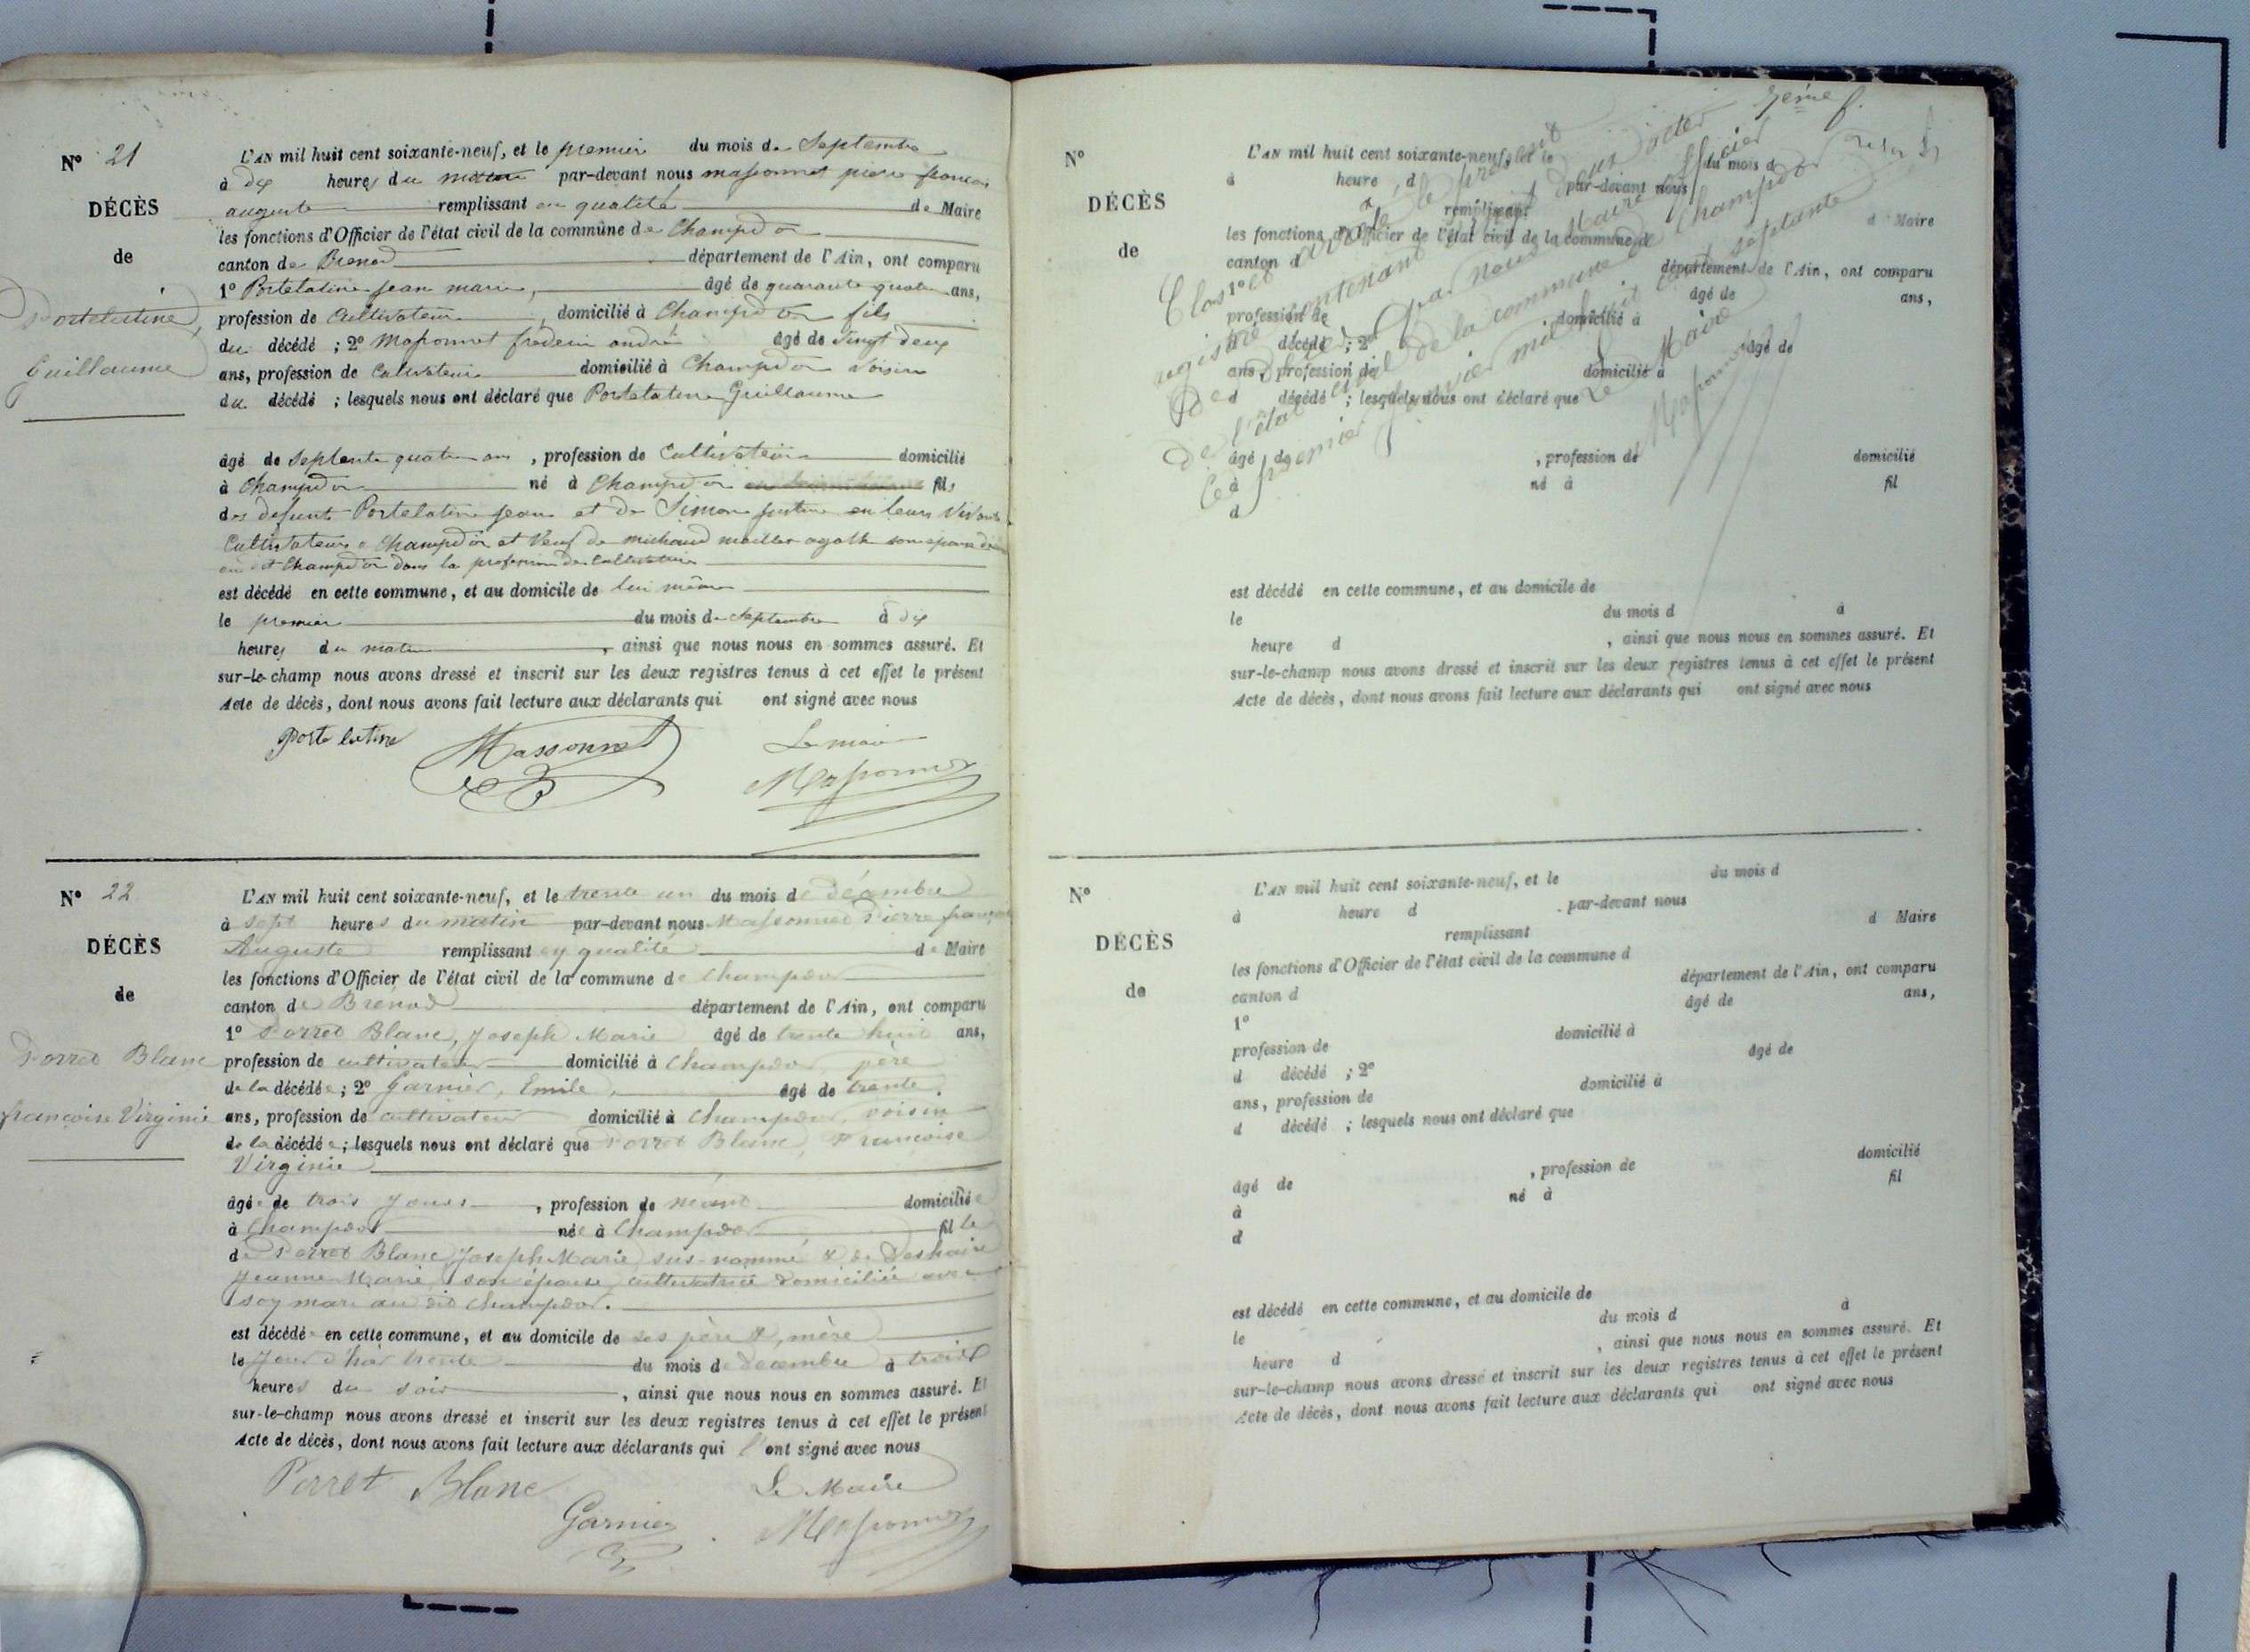 N° 21
DÉCÈS
de
Portelatine
Guillaume
L'AN mil huit cent soixante-neuf, et le premier du mois de Septembre
à dix heures du matin par-devant nous massonnet pierre françois
auguste remplissant en qualité de Maire
les fonctions d'Officier de l'état civil de la commune de Champdor
canton de Brenod département de l'Ain, ont comparu
1° Portelatine jean marie, âgé de quarante quatre ans,
profession de Cultivateur, domicilié à Champdor fils
du décédé ; 2° Massonnet frederic andré âgé de Vingt deux
ans, profession de Cultivateur domicilié à Champdor Voisin
du décédé ; lesquels nous ont déclaré que Portelatine Guillaume
âgé de septente quatre ans, profession de Cultivateur domicilié
à Champdor né à Champdor fils
des defunt Portelatine jean et de Simon justine en leurs Vivants
Cultivateurs a Champdor et Veuf de michaud maillet agathe son epouse
Champdor dans la profession de Cultivatrice
est décédé en cette commune, et au domicile de lui même
le premier du mois de Septembre à dix
heures du matin, ainsi que nous nous en sommes assuré. Et
sur-le-champ nous avons dressé et inscrit sur les deux registres tenus à cet effet le présent
Acte de décès, dont nous avons fait lecture aux déclarants qui ont signé avec nous
Porte latine Massonnet Le maire
Massonnet
N° 22
DÉCÈS
de
Porret Blanc
françoise Virginie
L'AN mil huit cent soixante-neuf, et le trente un du mois de décembre
à sept heures du matin par-devant nous Massonnet Pierre françois
Auguste remplissant en qualité de Maire
les fonctions d'Officier de l'état civil de la commune de Champdor
canton de Brénod département de l'Ain, ont comparu
1° Porret Blanc, Joseph Marie âgé de trente huit ans,
profession de cultivateur domicilié à Champdor, père
de la décédée ; 2° Garnier, Emile, âgé de trente
ans, profession de cultivateur domicilié à Champdor, voisin
de la décédée ; lesquels nous ont déclaré que Porret Blanc, Françoise
Virginie
âgée de trois jours, profession de néant domiciliée
à Champdor née à Champdor fille
de Porret Blanc Joseph Marie sus-nommé & de Deshaire
Jeanne Marie, son épouse, cultivatrice domiciliée avec
son mari au dit Champdor.
est décédée en cette commune, et au domicile de ses père & mère
le jour d'hier trente du mois de décembre à trois
heures du soir, ainsi que nous nous en sommes assuré. Et
sur-le-champ nous avons dressé et inscrit sur les deux registres tenus à cet effet le présent
Acte de décès, dont nous avons fait lecture aux déclarants qui l'ont signé avec nous
Porret Blanc Le Maire
Garnier Massonnet
7eme f.
Clos et arrêté le présent
registre contenant vingt deux actes
de décès par nous Maire officier
de l'état civil de la commune de Champdor
ce premier janvier mil huit cent septante
Le Maire
Massonnet
N°
DÉCÈS
de
L'AN mil huit cent soixante-neuf, et le du mois d
à heure d par-devant nous
remplissant d Maire
les fonctions d'Officier de l'état civil de la commune d
canton d département de l'Ain, ont comparu
1° âgé de ans,
profession de domicilié à
d décédé ; 2° âgé de
ans, profession de domicilié à
d décédé ; lesquels nous ont déclaré que
âgé de , profession de domicilié
à né à fil
d
est décédé en cette commune, et au domicile de
le du mois d à
heure d , ainsi que nous nous en sommes assuré. Et
sur-le-champ nous avons dressé et inscrit sur les deux registres tenus à cet effet le présent
Acte de décès, dont nous avons fait lecture aux déclarants qui ont signé avec nous
N°
DÉCÈS
de
L'AN mil huit cent soixante-neuf, et le du mois d
à heure d par-devant nous
remplissant d Maire
les fonctions d'Officier de l'état civil de la commune d
canton d département de l'Ain, ont comparu
1° âgé de ans,
profession de domicilié à
d décédé ; 2° âgé de
ans, profession de domicilié à
d décédé ; lesquels nous ont déclaré que
âgé de , profession de domicilié
à né à fil
d
est décédé en cette commune, et au domicile de
le du mois d à
heure d , ainsi que nous nous en sommes assuré. Et
sur-le-champ nous avons dressé et inscrit sur les deux registres tenus à cet effet le présent
Acte de décès, dont nous avons fait lecture aux déclarants qui ont signé avec nous